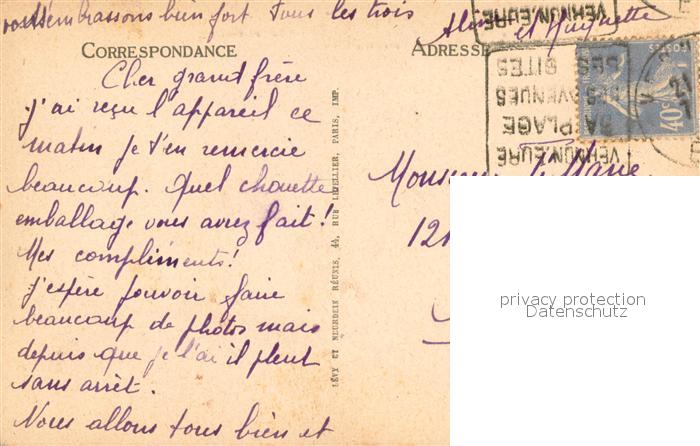 vous embrassons bien fort tous les trois
et Huguette
CORRESPONDANCE
ADRESSE
Cher grand frère
J'ai reçu l'appareil ce
matin je t'en remercie
beaucoup. Quel chouette
emballage vous avez fait!
Mes compliments!
J'espère pouvoir faire
beaucoup de photos mais
depuis que je l'ai il pleut
sans arrêt.
Nous allons tous bien et
LÉVY ET NEURDEIN RÉUNIS, 44, RUE LETELLIER, PARIS, IMP.
VERNON.EURE
SA PLAGE
SES AVENUES
SES SITES
VERNON.EURE
POSTES
40c
Monsieur
121
privacy protection
Datenschutz